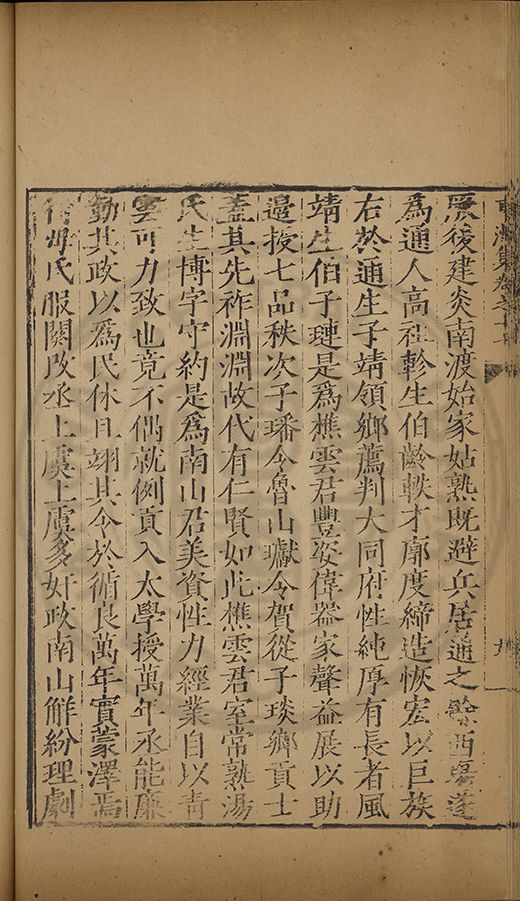 厥後建炎南渡始家姑熟既避兵居通之餘西場蓬
為通人高祖軫生伯齡軼才廓度締造恢宏以巨族
右於通生子靖領鄉薦判大同府性純厚有長者風
靖生伯子璉是為樵雲君豐姿偉器家聲益展以助
邉授七品秩次子璠令魯山瓛令賀從子琰鄉貢士
蓋其先祚淵淵故代有仁賢如此樵雲君室常熟湯
氏生博字守約是為南山君美資性力經業自以青
雲可力致也竟不偶就例貢入太學授萬年丞能廉
勤其政以為民休且翊其令於循良萬年實蒙澤焉
母氏服闋改丞上虞上虞多奸政南山觧紛理劇